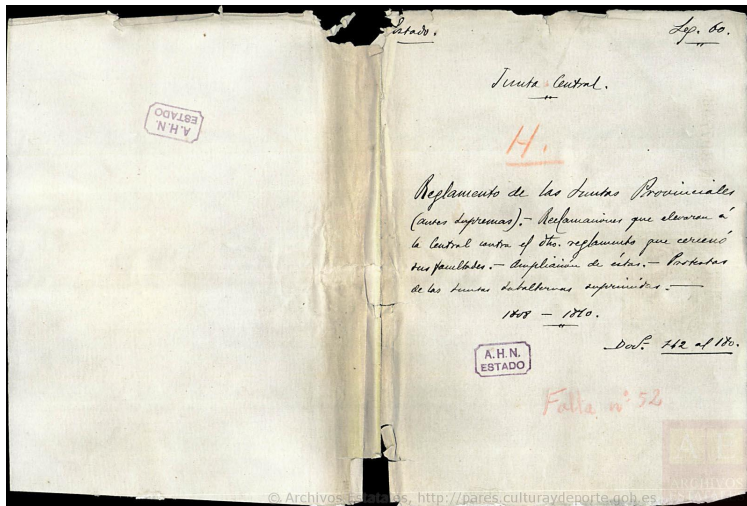 Estado.
Leg. 60.
Junta Central.
H.
Reglamento de las Juntas Provinciales
(antes Supremas). — Reclamaciones que elevaron á
la Central contra el dho. reglamento que cercenó
sus facultades. — Ampliación de éstas. — Protestas
de las Juntas subalternas suprimidas. —
1808 — 1810.
Docs.
A.H.N.
ESTADO
A.H.N.
ESTADO
Falta nº 52
ARCHIVOS
© Archivos Estatales, http://pares.culturaydeporte.gob.es